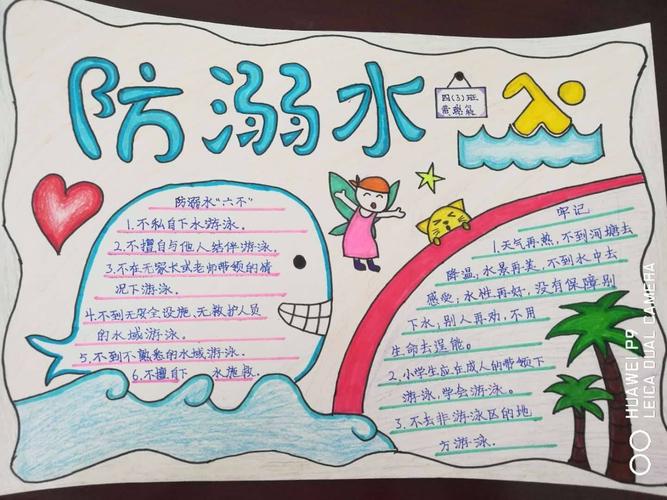 防溺水
四(3)班
防溺水"六不"
1.不私自下水游泳。
2.不擅自与他人结伴游泳。
3.不在无家长或老师带领的情
况下游泳。
4.不到无安全设施、无救护人员
的水域游泳。
5.不到不熟悉的水域游泳。
6.不擅自下 水施救。
牢记
1.天气再热,不到河塘去
降温,水景再美,不到水中去
感受;水性再好,没有保障别
下水;别人再劝,不用
生命去逞能。
2.小学生应在成人的带领下
游泳,学会游泳。
3.不去非游泳区的地
方游泳.
HUAWEI P9
LEICA DUAL CAMERA